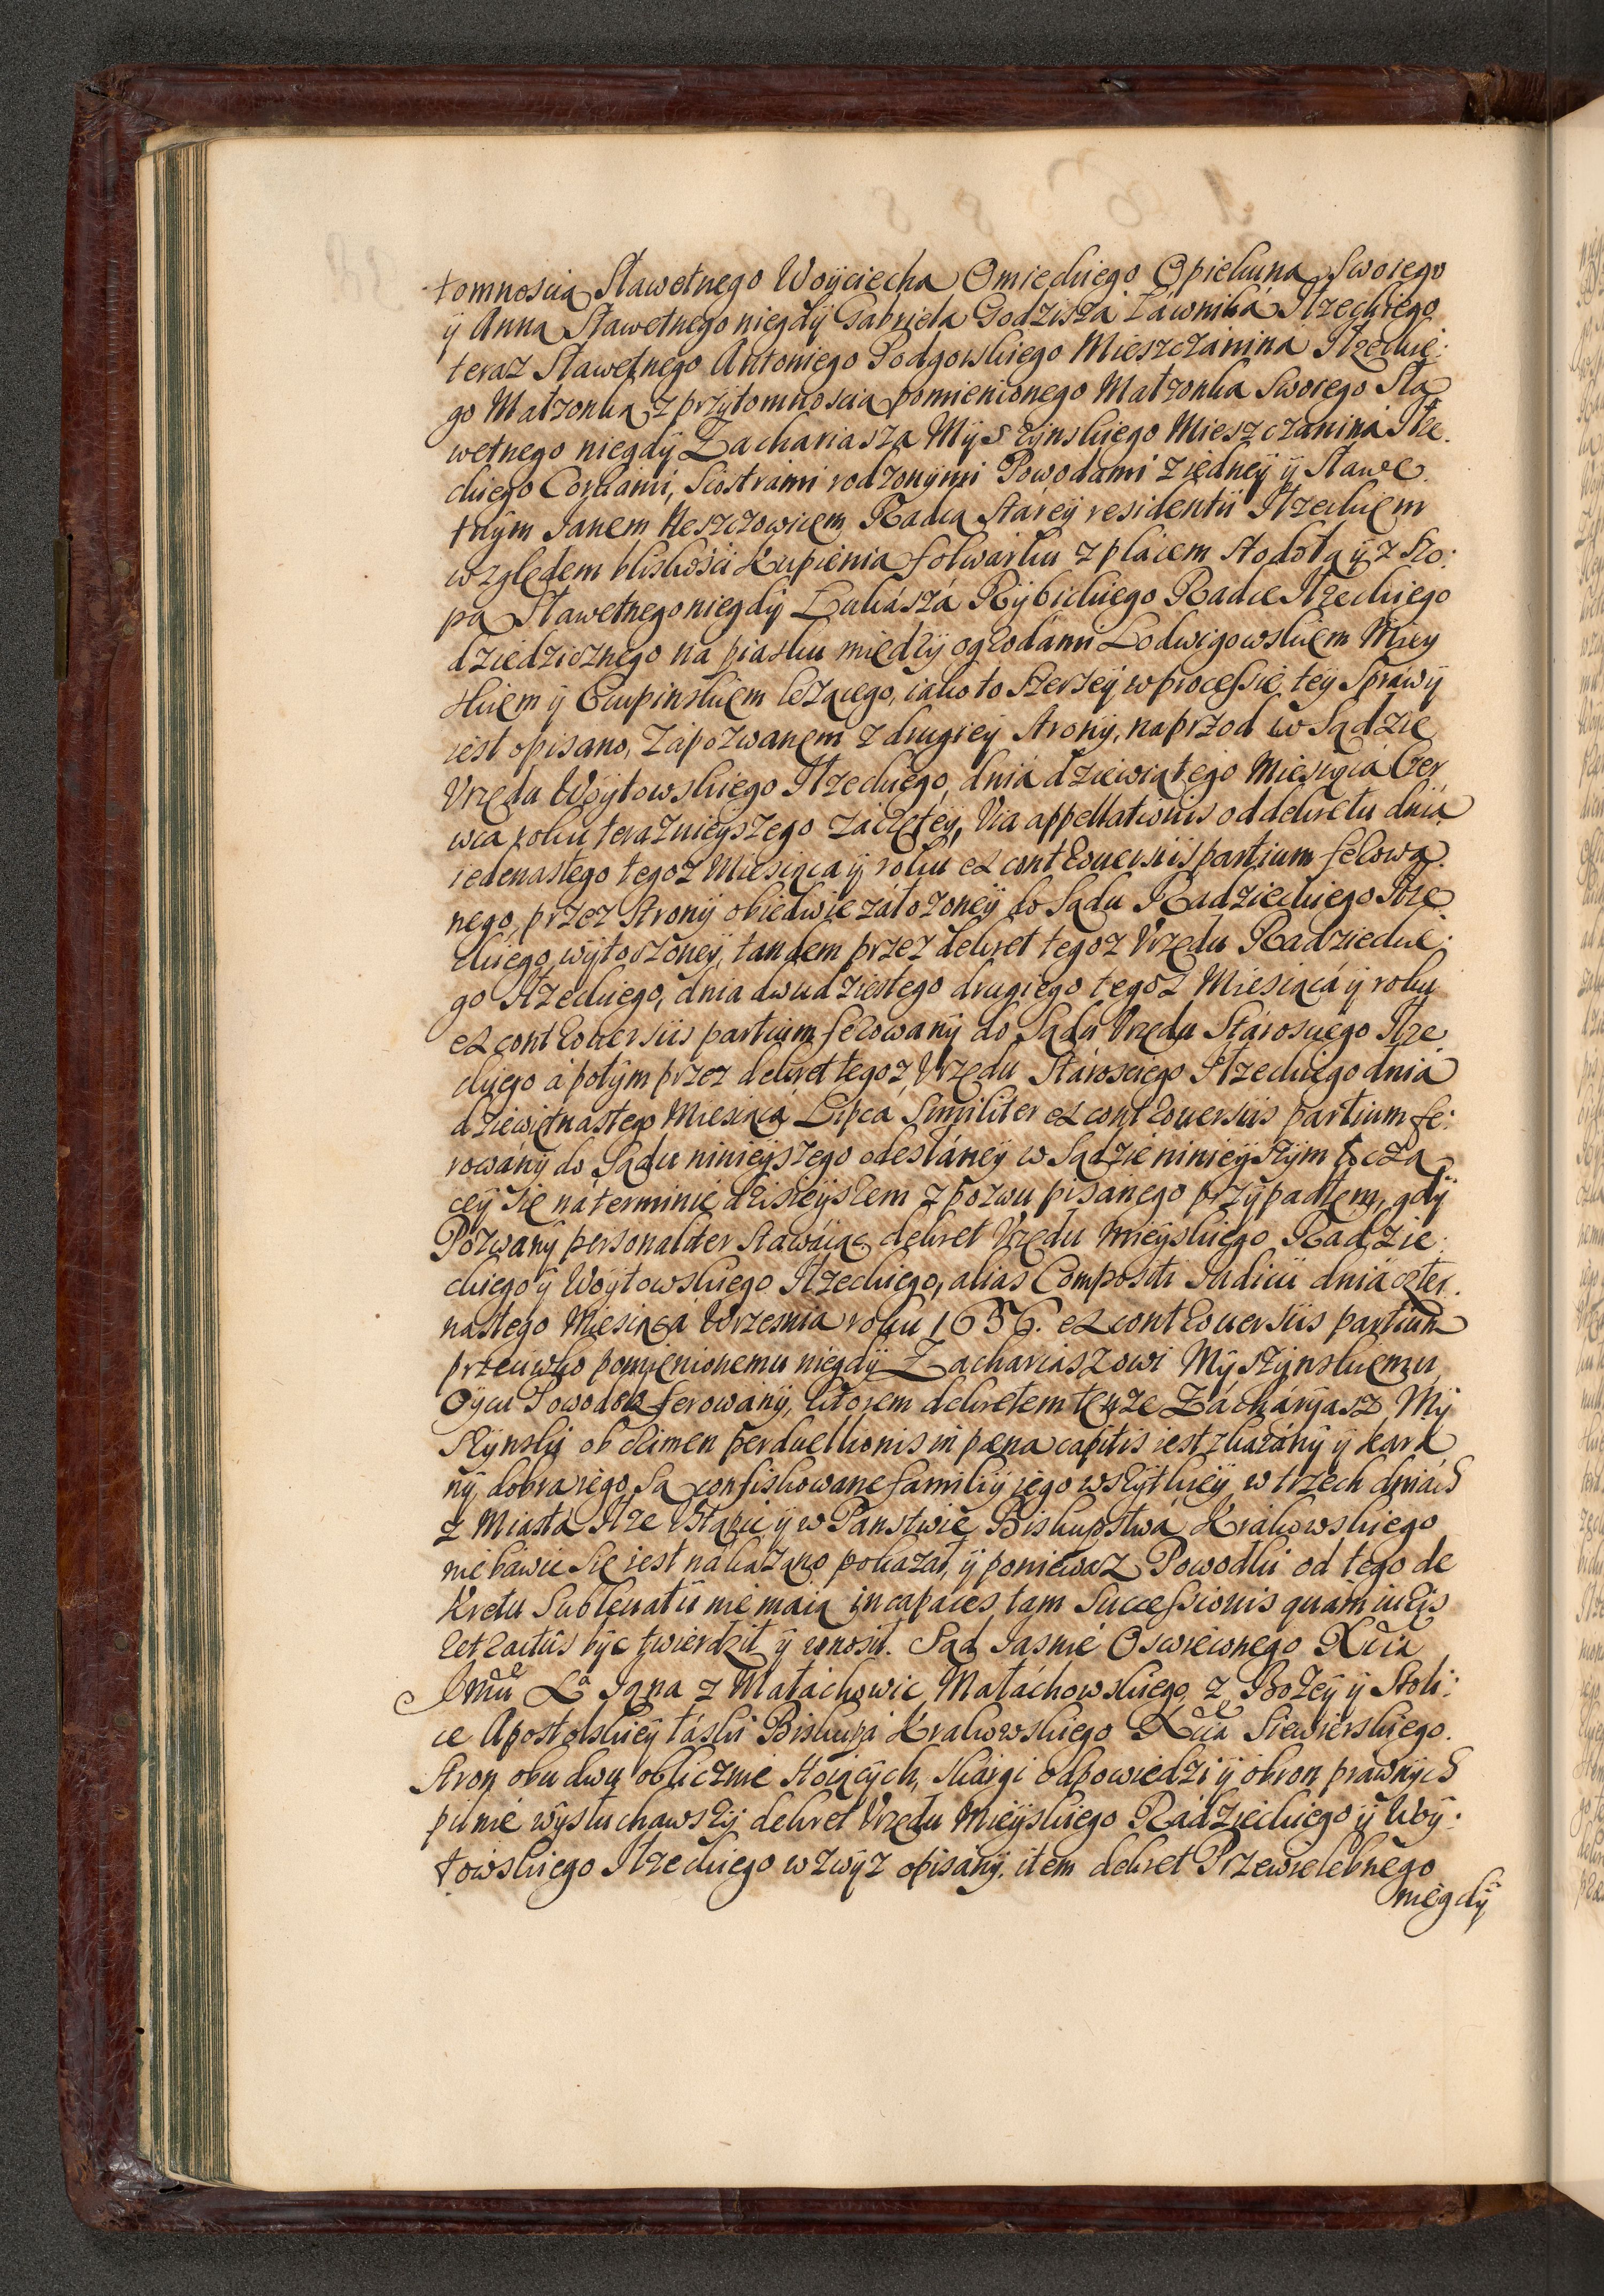 tomnoscią Sławetnego Woyciecha Omieckiego Opiekuna Swoiego
ÿ Anna Sławetnego niegdÿ Gabriela Godzisza Ławniká Iłzeckiego
teraz Sławetnego Antoniego Podgorskiego Mieszczánina Iłzeckie:
go Małzonka z przÿtomnoscią pomienionego Małzonka Swoiego Sła
wetnego niegdÿ Zachariasza Mÿszÿnskiego Mieszczanina Iłze.
ckiego Corkami, Siostrami rodzonÿmi Powodami z iedneÿ ÿ Sławe
tnÿm Janem Kleszczowicem Radcą Stáreÿ residentiÿ Iłzeckiem
względem bliskośći Kupienia folwárku z plácem stodołą ÿ z szo:
pą Sławetnego niegdÿ Łukászá Rÿbickiego Radce Iłzeckiego
dziedzicznego na piasku międzÿ ogrodámi Lodwigowskiem Miey
skiem ÿ Czupinskiem lezącego, iako to szerzeÿ w processie teÿ Sprawÿ
iest opisano, Zápozwanem z drugieÿ stronÿ, naprzod w Sądzie
Vrzędu Woytowskiego Iłzeckiego, dniá dziewiątego Miesiącá Czer
wca roku teraznieÿszego záczęteÿ, Via appellationis od dekretu dniá
iedenastego tegoz Miesiąca ÿ roku ex controuersiis partium ferowa
nego, przez stronÿ obiedwie záłozoneÿ do Sądu Radzieckiego Iłze
ckiego wÿtoczoneÿ, tandem przez dekret tegoz Vrzędu Radzieckie:
go Iłzeckiego, dnia dwudziestego drugiego tegoz Miesiącá ÿ roku
ex controuersiis partium ferowanÿ do Sądu Vrzędu Stárosciego Iłze
ckiego á potÿm przez dekret tegoz Vrzędu Stárosciego Iłzeckiego dniá
dziewiętnastego Miesiącá Lipcá Similiter ex controuersiis partium fe:
rowanÿ do Sądu ninieÿszego odesłáneÿ w Sądzie ninieÿszÿm toczą
ceÿ się ná terminie dzisieÿszem z pozwu pisanego przÿpadłem, gdÿ
Pozwanÿ personaliter stawáiąc dekret Vrzędu Mieÿskiego Radzie:
ckiego ÿ Woÿtowskiego Iłzeckiego, alias Compositi Iudicii dniá czter
nastego Miesiącá Wrzesnia roku 1656. ex controuersiis partium
przeciwko pomienionemu niegdÿ Zachariaszowi Mÿszÿnskiemu
Oÿcu Powodek ferowanÿ, ktorem dekretem tenze Záchárÿasz Mÿ
szÿnski ob crimen perduellionis in pæna capitis iest zkazánÿ ÿ kara
nÿ, dobra iego są confiskowane familiÿ iego wszÿtkieÿ w trzech dniách
z Miasta Iłze vstąpic ÿ w Panstwie Biskupstwá Krakowskiego
nie báwic się iest nákazano pokazał, ÿ poniewaz Powodki od tego de
kretu Subleuatÿ nie maią incapaces tam Successionis quam iuris
retractus bÿc twierdził ÿ wnosił. Sąd Jasnie Oswieconego Xcia
Jmci Xa Jana z Małáchowic Małáchowskiego z Bozeÿ ÿ Stoli:
ce Apostolskieÿ łáski Biskupá Krakowskiego Xcia Siewierskiego.
Stron obudwu oblicznie stoiącÿch, Skárgi odpowiedzi ÿ obron prawnÿch
pilnie wÿsłuchawszÿ dekret Vrzędu Mieÿskiego Rádzieckiego ÿ Woÿ:
towskiego Iłzeckiego wzwÿz opisanÿ, item dekret Przewielebnego
niegdÿ